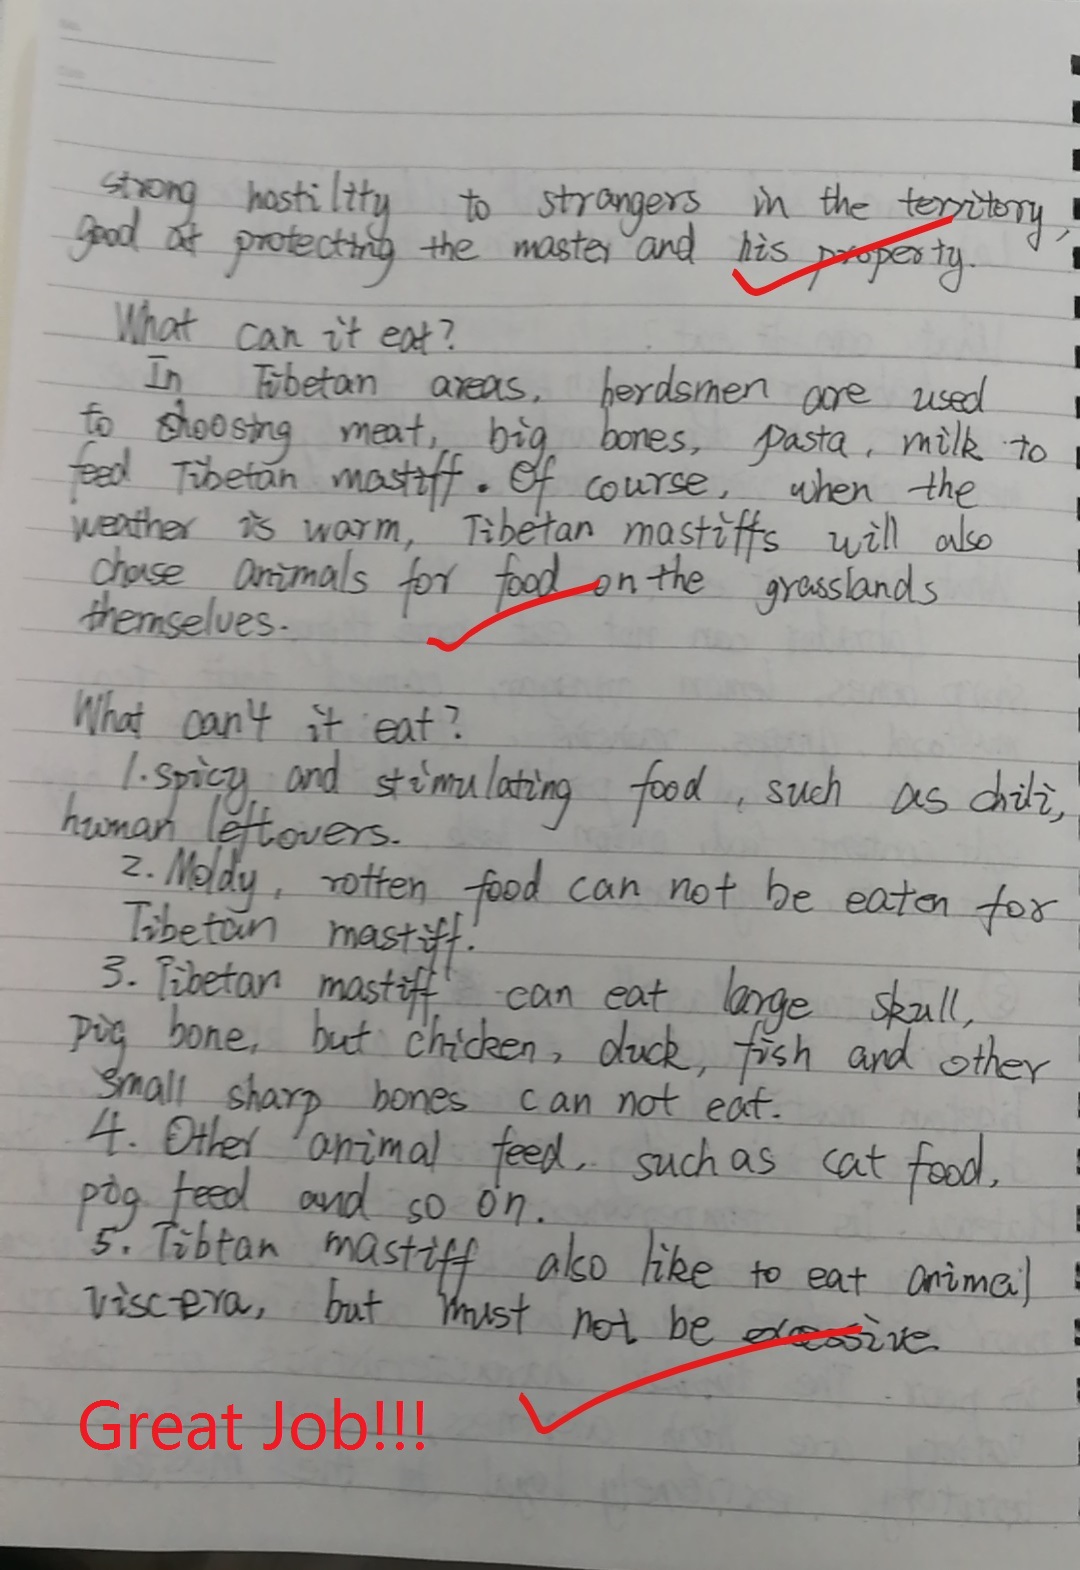 strong hostility to strangers in the territory,
good at protecting the master and his property.
What can it eat?
In Tibetan areas, herdsmen are used
to choosing meat, big bones, pasta, milk to
feed Tibetan mastiff. Of course, when the
weather is warm, Tibetan mastiffs will also
chase animals for food on the grasslands
themselves.
What can't it eat?
1. spicy and stimulating food, such as chili,
human leftovers.
2. Moldy, rotten food can not be eaten for
Tibetan mastiff.
3. Tibetan mastiff can eat large skull,
pig bone, but chicken, duck, fish and other
small sharp bones can not eat.
4. Other animal feed, such as cat food,
pig feed and so on.
5. Tibtan mastiff also like to eat animal
viscera, but must not be excessive.
Great Job!!!